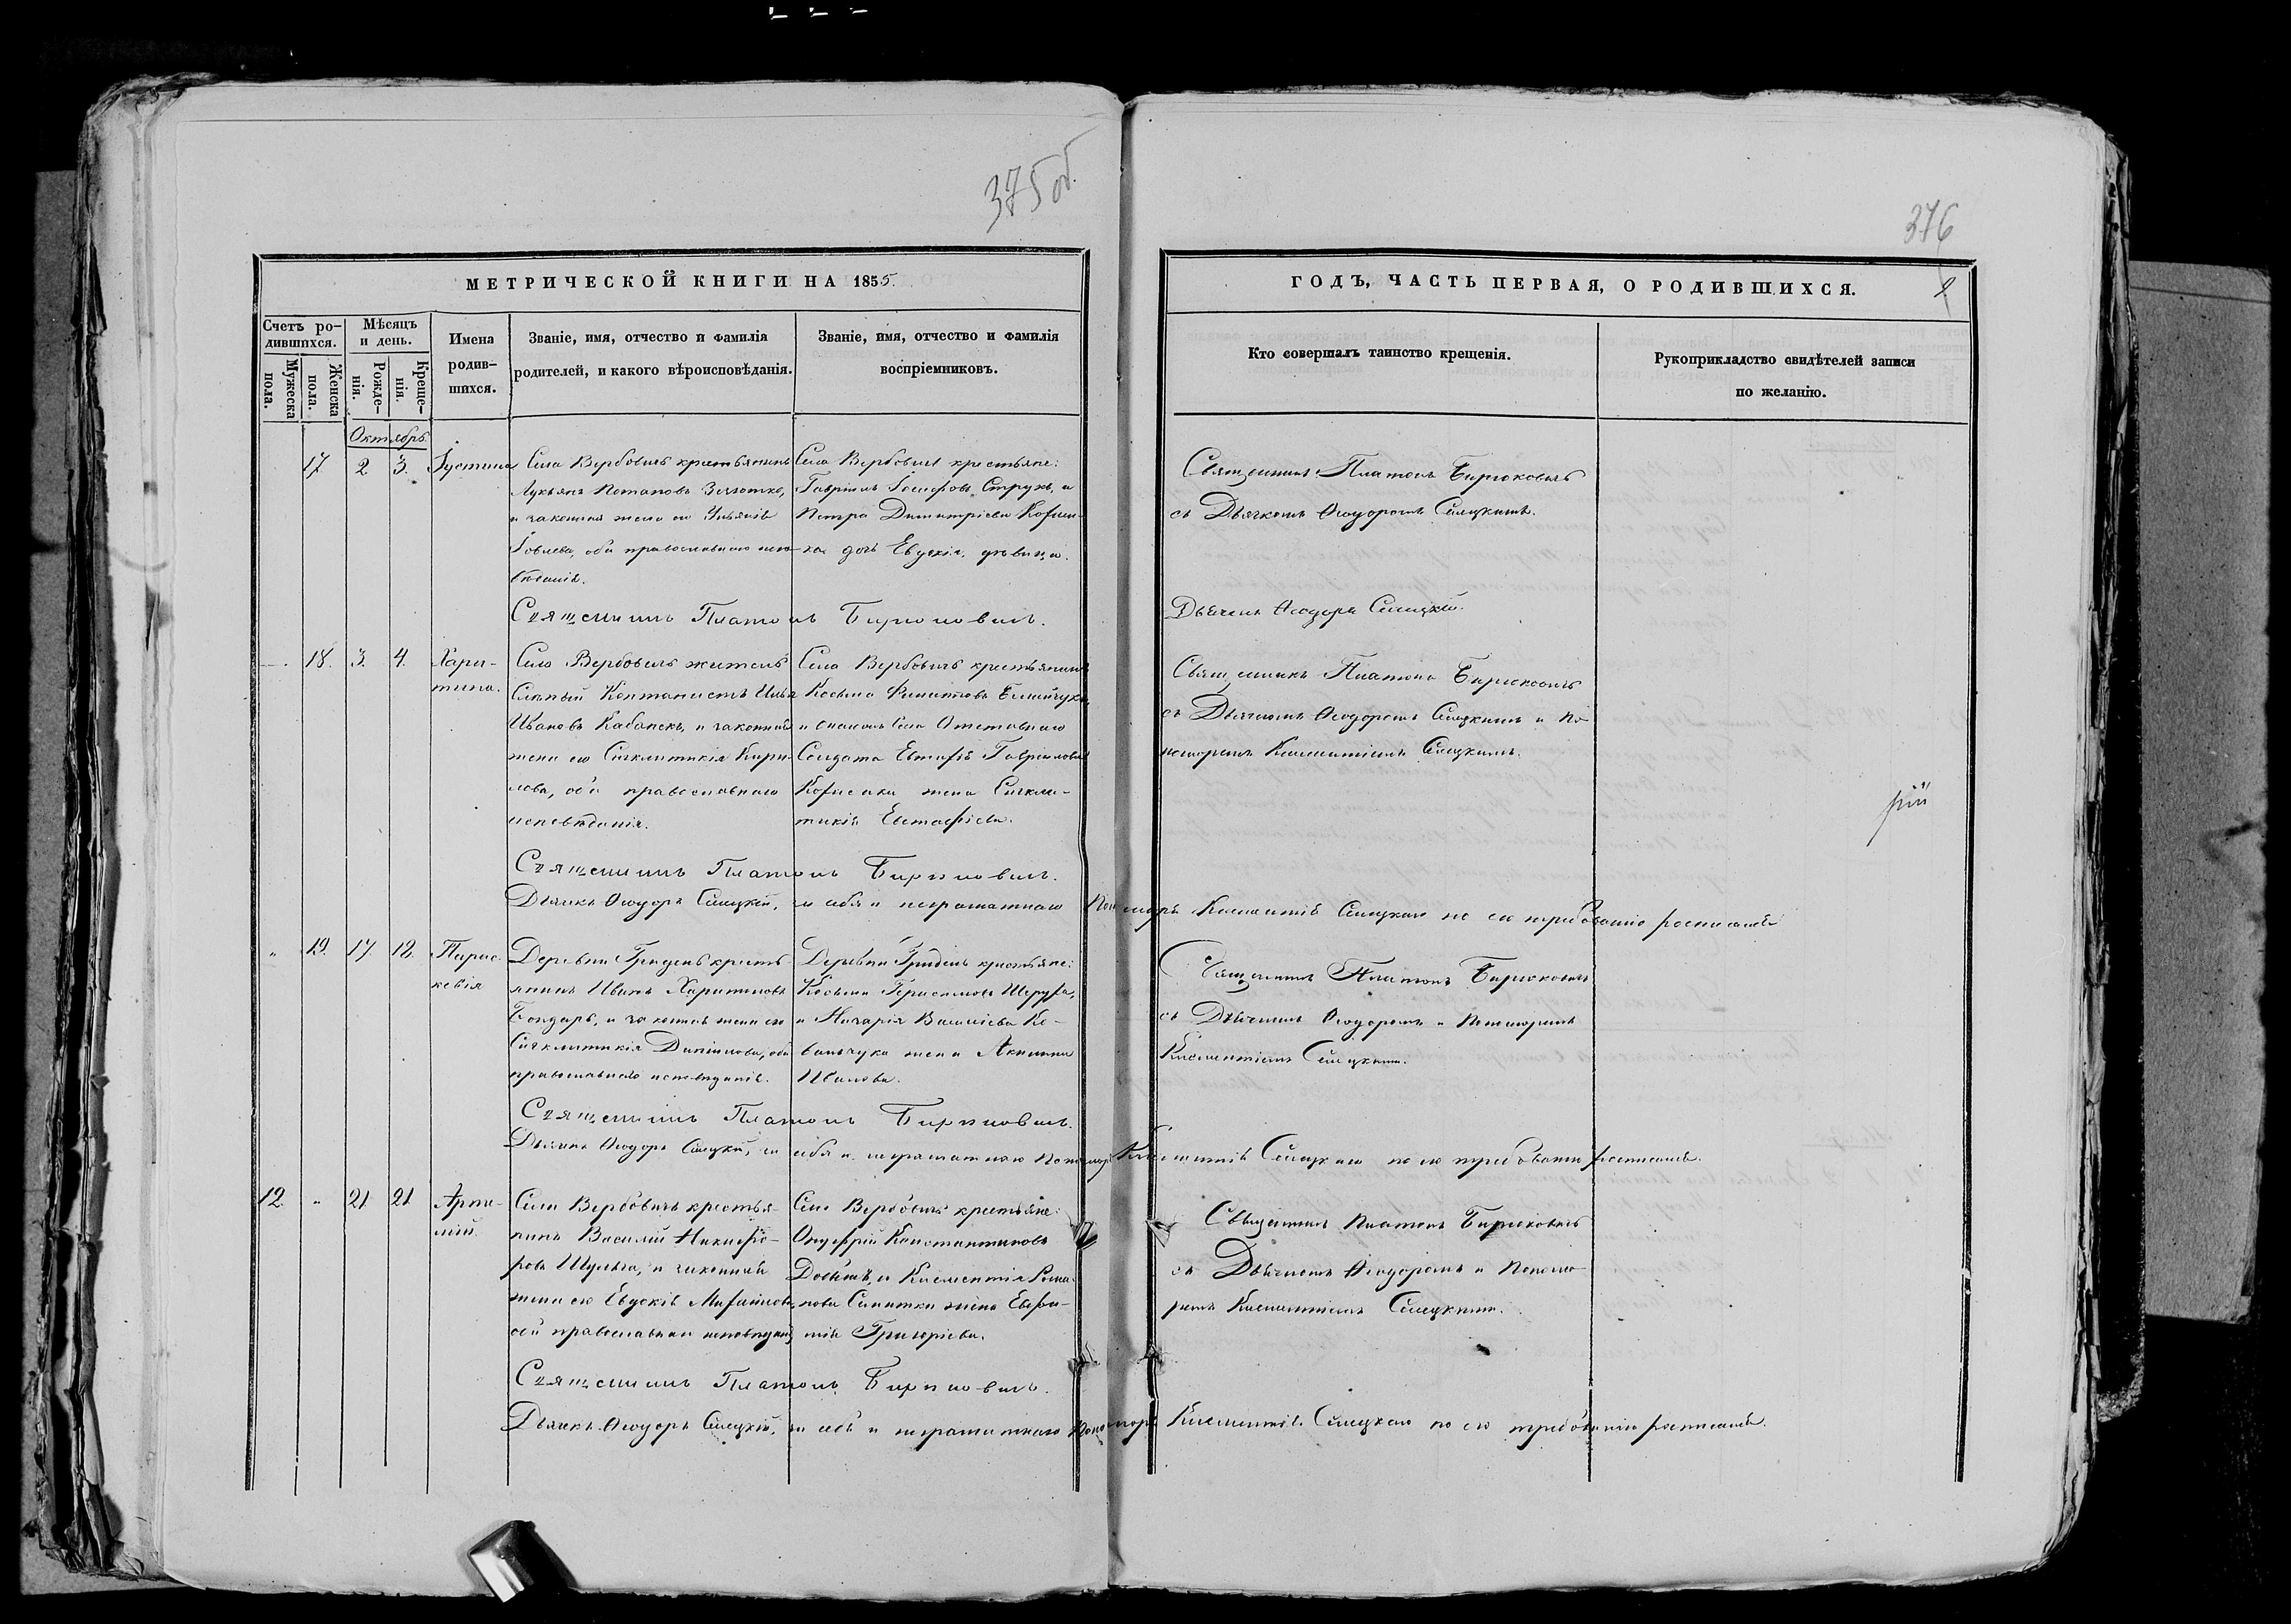 375 об.
376
МЕТРИЧЕСКОЙ КНИГИ НА 1855.
ГОДЪ, ЧАСТЬ ПЕРВАЯ, О РОДИВШИХСЯ.
Счетъ ро-
дившихся.
Мужеска пола.
Женска пола.
Мѣсяцъ
и день.
Рожде-
нія.
Креще-
нія.
Имена
родив-
шихся.
Званіе, имя, отчество и фамилія
родителей, и какого вѣроисповѣданія.
Званіе, имя, отчество и фамилія
воспріемниковъ.
Кто совершалъ таинство крещенія.
Рукоприкладство свидѣтелей записи
по желанію.
Октябрь.
17 2 3. Іустина
Села Вербовичъ крестьянинъ
Лукьянъ Потаповъ
и законная жена его
Іовлева, оба православнаго испо-
вѣданія.
Села Вербовичъ крестьяне:
Гавріилъ Іосифовъ Струкъ, и
Петра Димитріева
дочь Евдокія, дѣвица.
Священникъ Платонъ Бирюковичъ
съ Дьячкомъ Ѳеодоромъ Сѣлецкимъ.
Священникъ Платонъ Бирюковичъ.
Дьячекъ Ѳеодоръ Сѣлецкій.
18. 3. 4. Хари-
тина.
Села Вербовичъ житель
Ивановъ и законная
жена его Сигклитикія Кири-
лова, оба православнаго
исповѣданія.
Села Вербовичъ крестьянинъ
Косьма Филиповъ
и Отставнаго
Солдата Гавриилова
жена Сигкли-
тикія Евстафіева.
Священникъ Платонъ Бирюковичъ
съ Дьячкомъ Ѳеодоромъ Сѣлецкимъ и По-
номоремъ Климентіемъ Сѣлецкимъ.
Священникъ Платонъ Бирюковичъ.
Дьячекъ Ѳеодоръ Сѣлецкій, за себя и неграматнаго Пономоря Климентія Сѣлецкаго по его требованію росписался
19. 17. 18. Парас-
кевія
Деревни Гридень кресть-
янинъ Иванъ Харитоновъ
Бондарь, и законная жена его
Сигклитикія оба
православнаго исповѣданія.
Деревни Гридень крестьяне:
Косьма Герасимовъ
и Василіева Ко-
вальчука жена Акилина
Иванова.
Священникъ Платонъ Бирюковичъ
съ Дьячкомъ Ѳеодоромъ и Пономоремъ
Климентіемъ Сѣлецкими.
Священникъ Платонъ Бирюковичъ.
Дьячекъ Ѳеодоръ Сѣлецкій, за себя и неграматнаго Пономоря Климентія Сѣлецкаго по его требованію росписался.
12. 21 21 Арте-
мій.
Села Вербовичъ крестья-
нинъ Василій Никифо-
ровъ Шульга, и законная
жена его Евдокія Михайлова,
оба православнаго исповѣданія
Села Вербовичъ крестьяне:
Онуфрій Константиновъ
и Климентія Рома-
нова жена Евфи-
мія Григоріева.
Священникъ Платонъ Бирюковичъ
съ Дьячкомъ Ѳеодоромъ и Пономо-
ремъ Климентіемъ Сѣлецкими.
Священникъ Платонъ Бирюковичъ.
Дьячекъ Ѳеодоръ Сѣлецкій, за себя и неграматнаго Пономоря Климентія Сѣлецкаго по его требованію росписался.